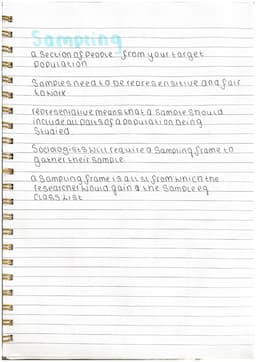 Sampling
a section of people from your target
population
Samples need to be represensitive and fair
to work
representative means that a sample should
include all parts of a population being
studied
Sociologists will require a sampling frame to
gather their sample
a sampling frame is a list from which the
researcher would gain a the sample eg
class list